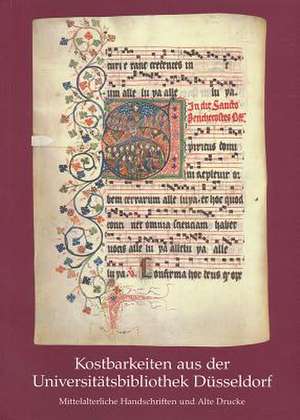 turi e rant credentes in
um alle lu ya alle lu ya.
In die Sancto
Penthecostes
piritus domi
ni replevit or
bem terrarum alle lu ya. et hoc quod
conti net omnia scienciam habet
vocis alle lu ya allelu ya alle
lu ya. Confirma hoc deus
Kostbarkeiten aus der
Universitätsbibliothek Düsseldorf
Mittelalterliche Handschriften und Alte Drucke